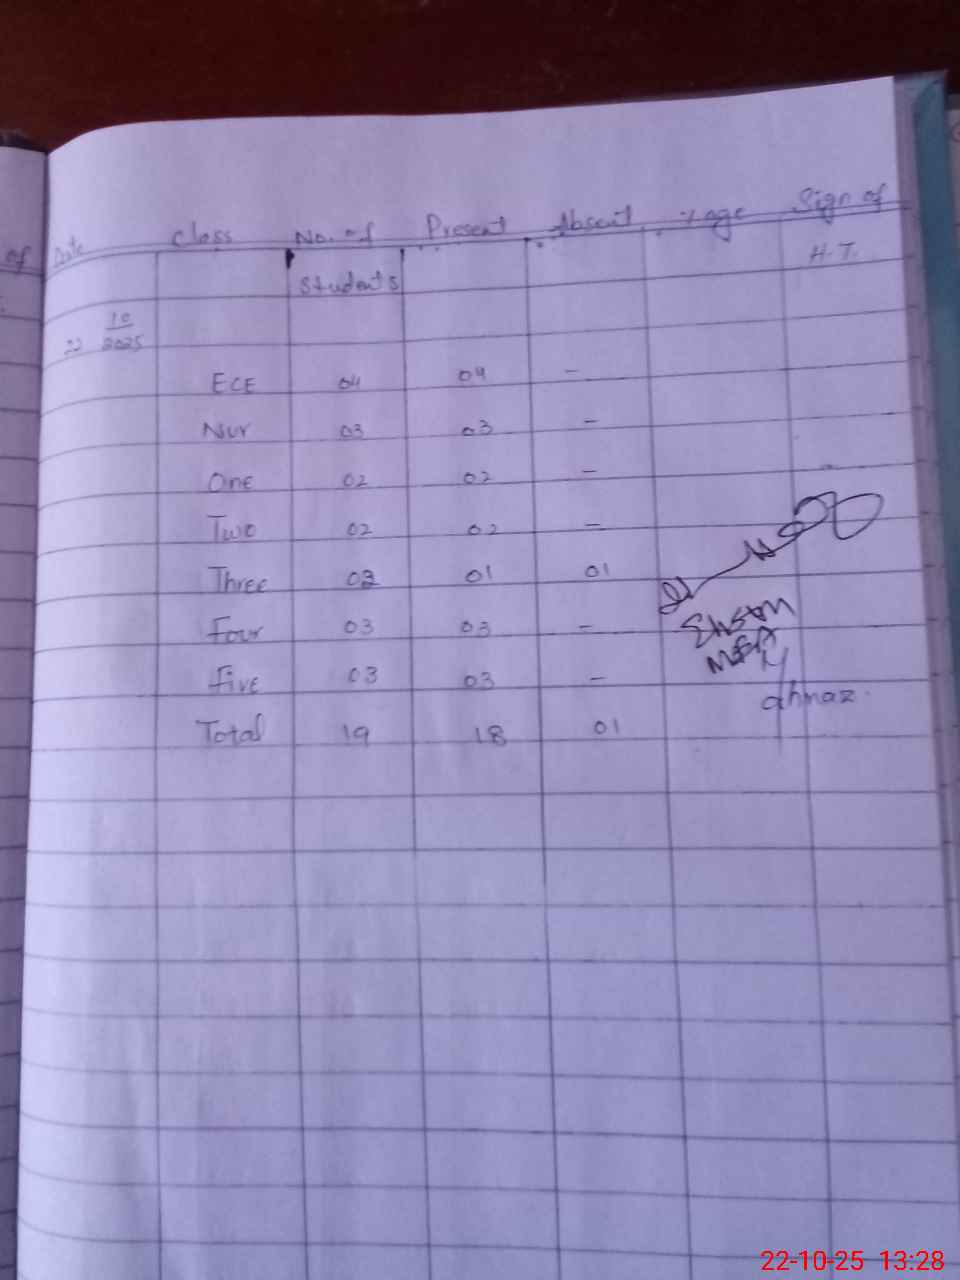 of
Date Class No. of Present Absent %age Sign of
Students H.T.
22 10/2025
ECE 04 04 -
Nur 03 03 -
One 02 02 -
Two 02 02 -
Three 02 01 01
Four 03 03 -
Five 03 03 -
Total 19 18 01
ahnaz.
22-10-25 13:28